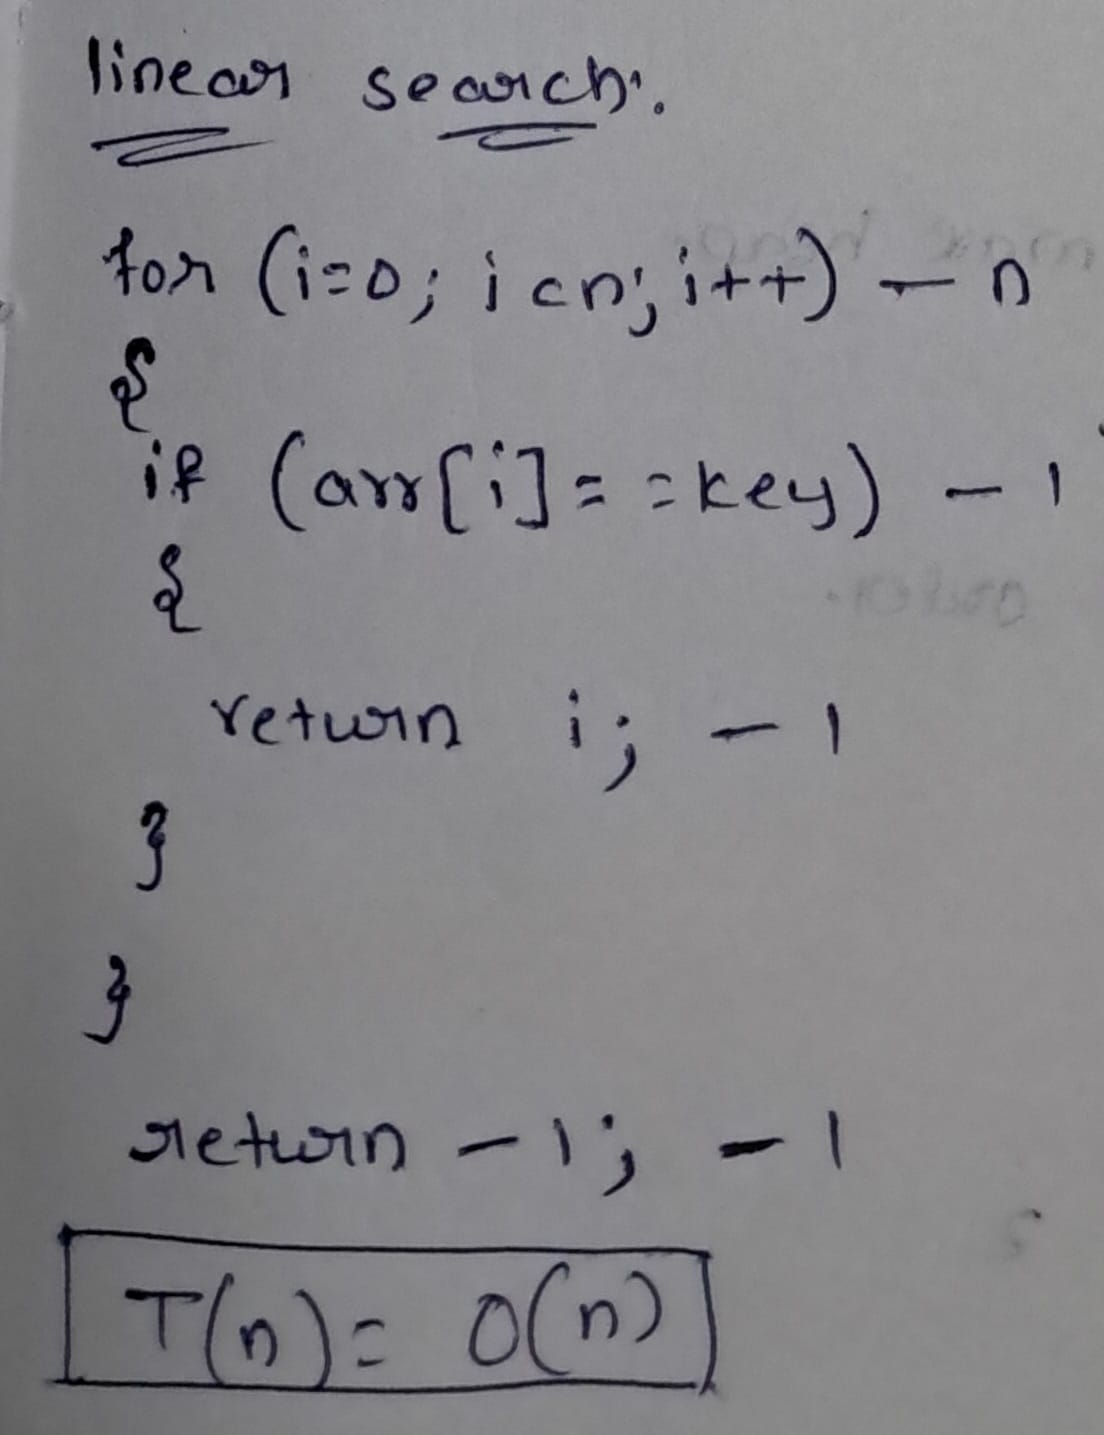 linear search:.
for (i=0; i<n; i++) — n
{
if (arr[i]==key) — 1
{
return i; — 1
}
}
return -1; — 1
T(n)= O(n)